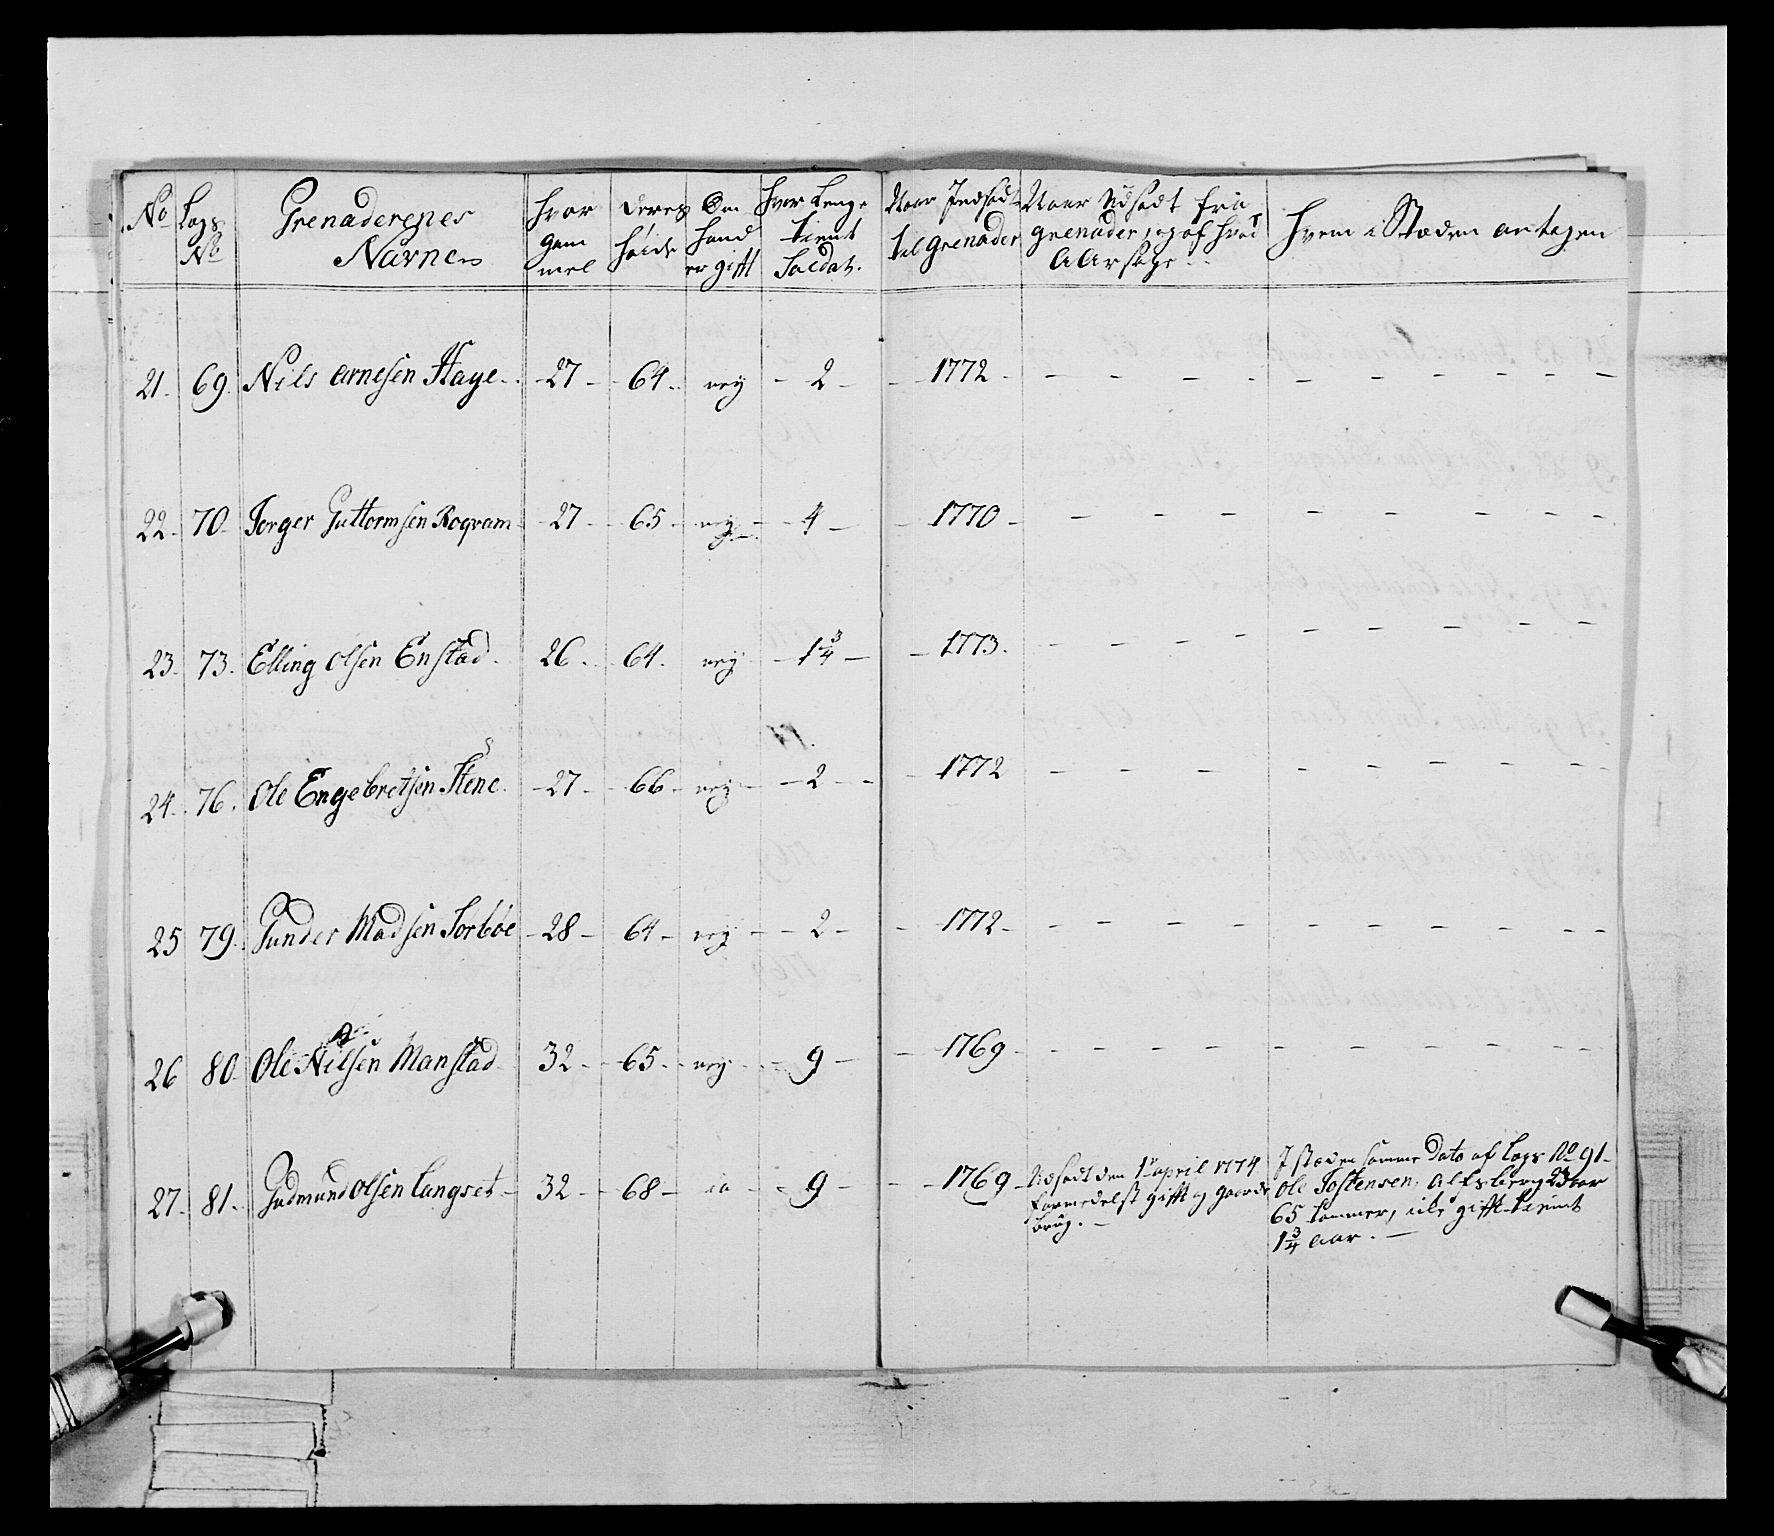 No Lægs No Grenaderenes Navne hvor gammel deres høide Om hand er gift hvor Lenge tient Soldat. Naar Indsadt til Grenader Naar Udsadt fra grenader, og af hvad Aarsage hvem i Stæden antagen
21. 69. Nils Arnesen Hage - 27 - 64 - ney - 2 - 1772 -
22. 70. Torger Guttormsen Rogram - 27 - 65 - ney - 4 - 1770 -
23. 73. Elling Olsen Enstad - 26 - 64 - ney - 1 3/4 - 1773.
24. 76. Ole Engebretsen Stene - 27 - 66 - ney - 2 - 1772
25 79. Gunder Madsen Torböe - 28 - 64 - ney - 2 - 1772 -
26 80. Ole Nilsen Manstad - 32 - 65 - ney - 9 - 1769 -
27. 81. Gudmund Olsen Langset - 32 - 68 - ia - 9 - 1769 -
Udsadt den 1te april 1774
formedelst gift og gaards
brug. -
I stæden samme Dato af Lægs No 91 -
Ole Tostensen
65 tommer, icke gift - tient
1 3/4 aar. -